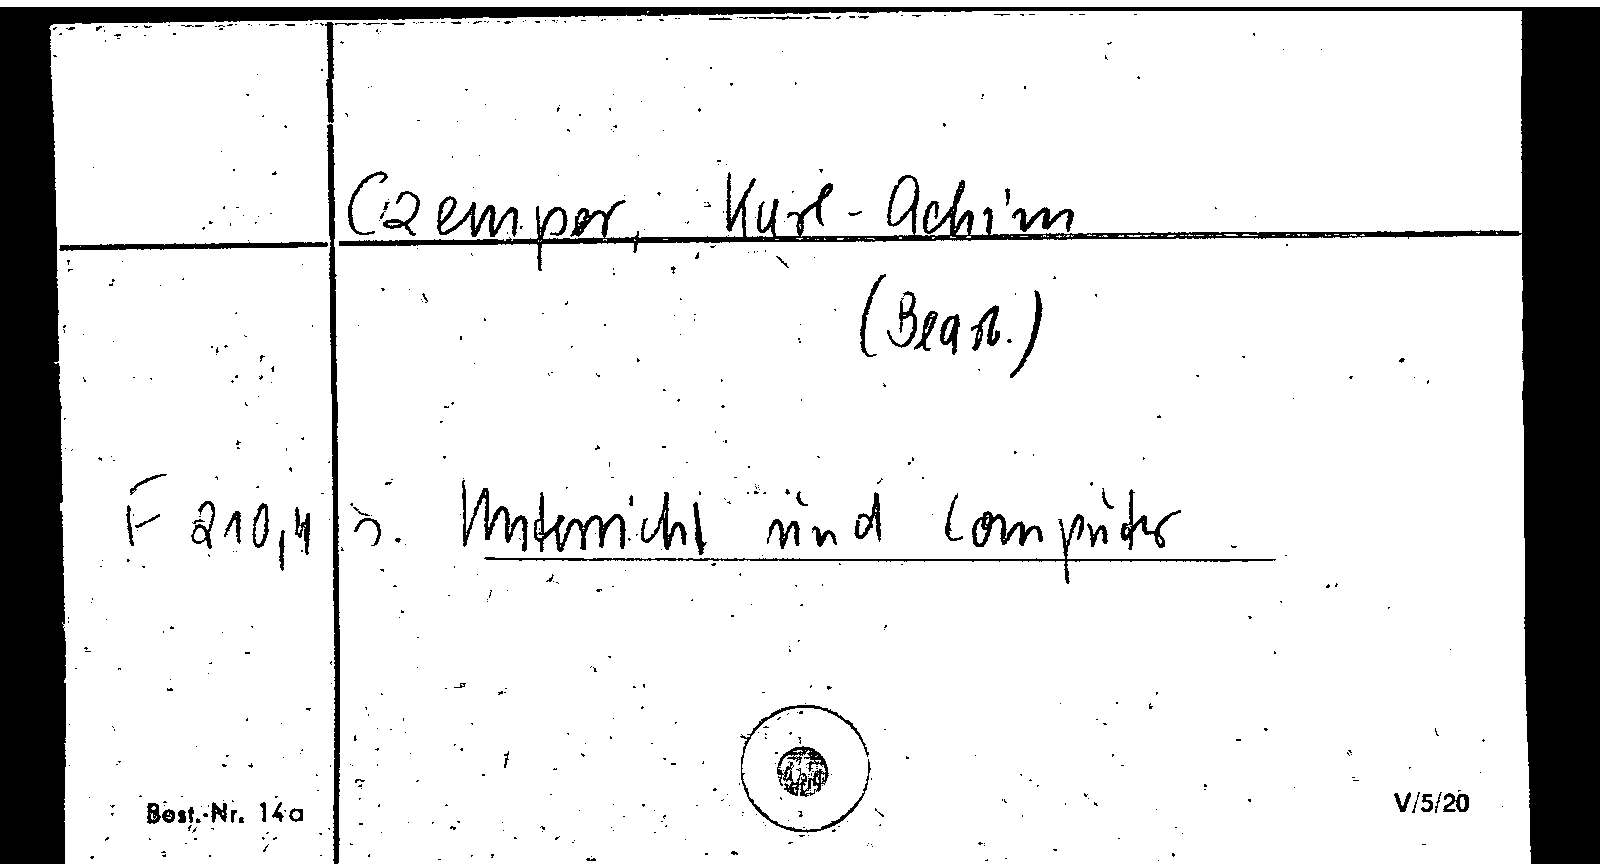 Czemper, Karl-Achim
(Bearb.)
F 210,4 s. Unterricht und Computer
Best.-Nr. 14a
V/5/20